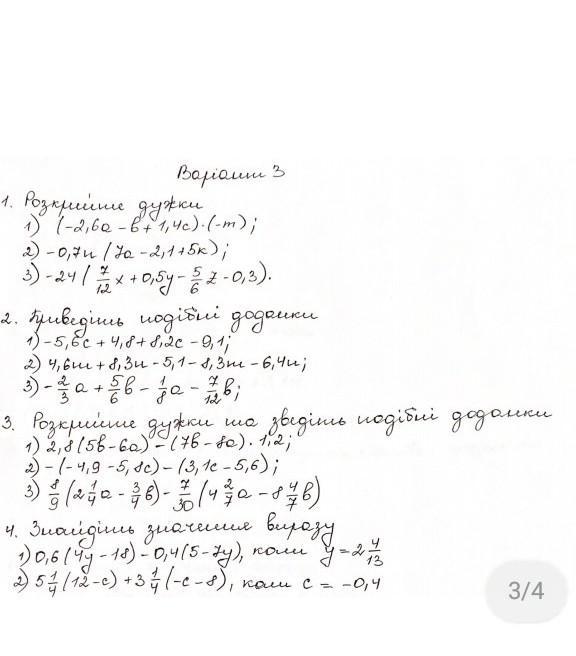 Варіант 3
1. Розкрийте дужки
1) (-2,6a - b + 1,4c)·(-m);
2) -0,7n (7a - 2,1 + 5к);
3) -24 ( 7/12 x + 0,5y - 5/6 z - 0,3).
2. Приведіть подібні доданки
1) -5,6c + 4,8 + 8,2c - 9,1;
2) 4,6m + 8,3n - 5,1 - 8,3m - 6,4n;
3) - 2/3 a + 5/6 b - 1/8 a - 7/12 b;
3. Розкрийте дужки та зведіть подібні доданки
1) 2,8 (5b - 6a) - (7b - 8a) · 1,2;
2) -(-4,9 - 5,8c) - (3,1c - 5,6);
3) 8/9 (2 1/4 a - 3/4 b) - 7/30 (4 2/7 a - 8 4/7 b)
4. Знайдіть значення виразу
1) 0,6 (4y - 18) - 0,4 (5 - 7y), коли y = 2 4/13
2) 5 1/4 (12 - c) + 3 1/4 (-c - 8), коли c = -0,4
3/4